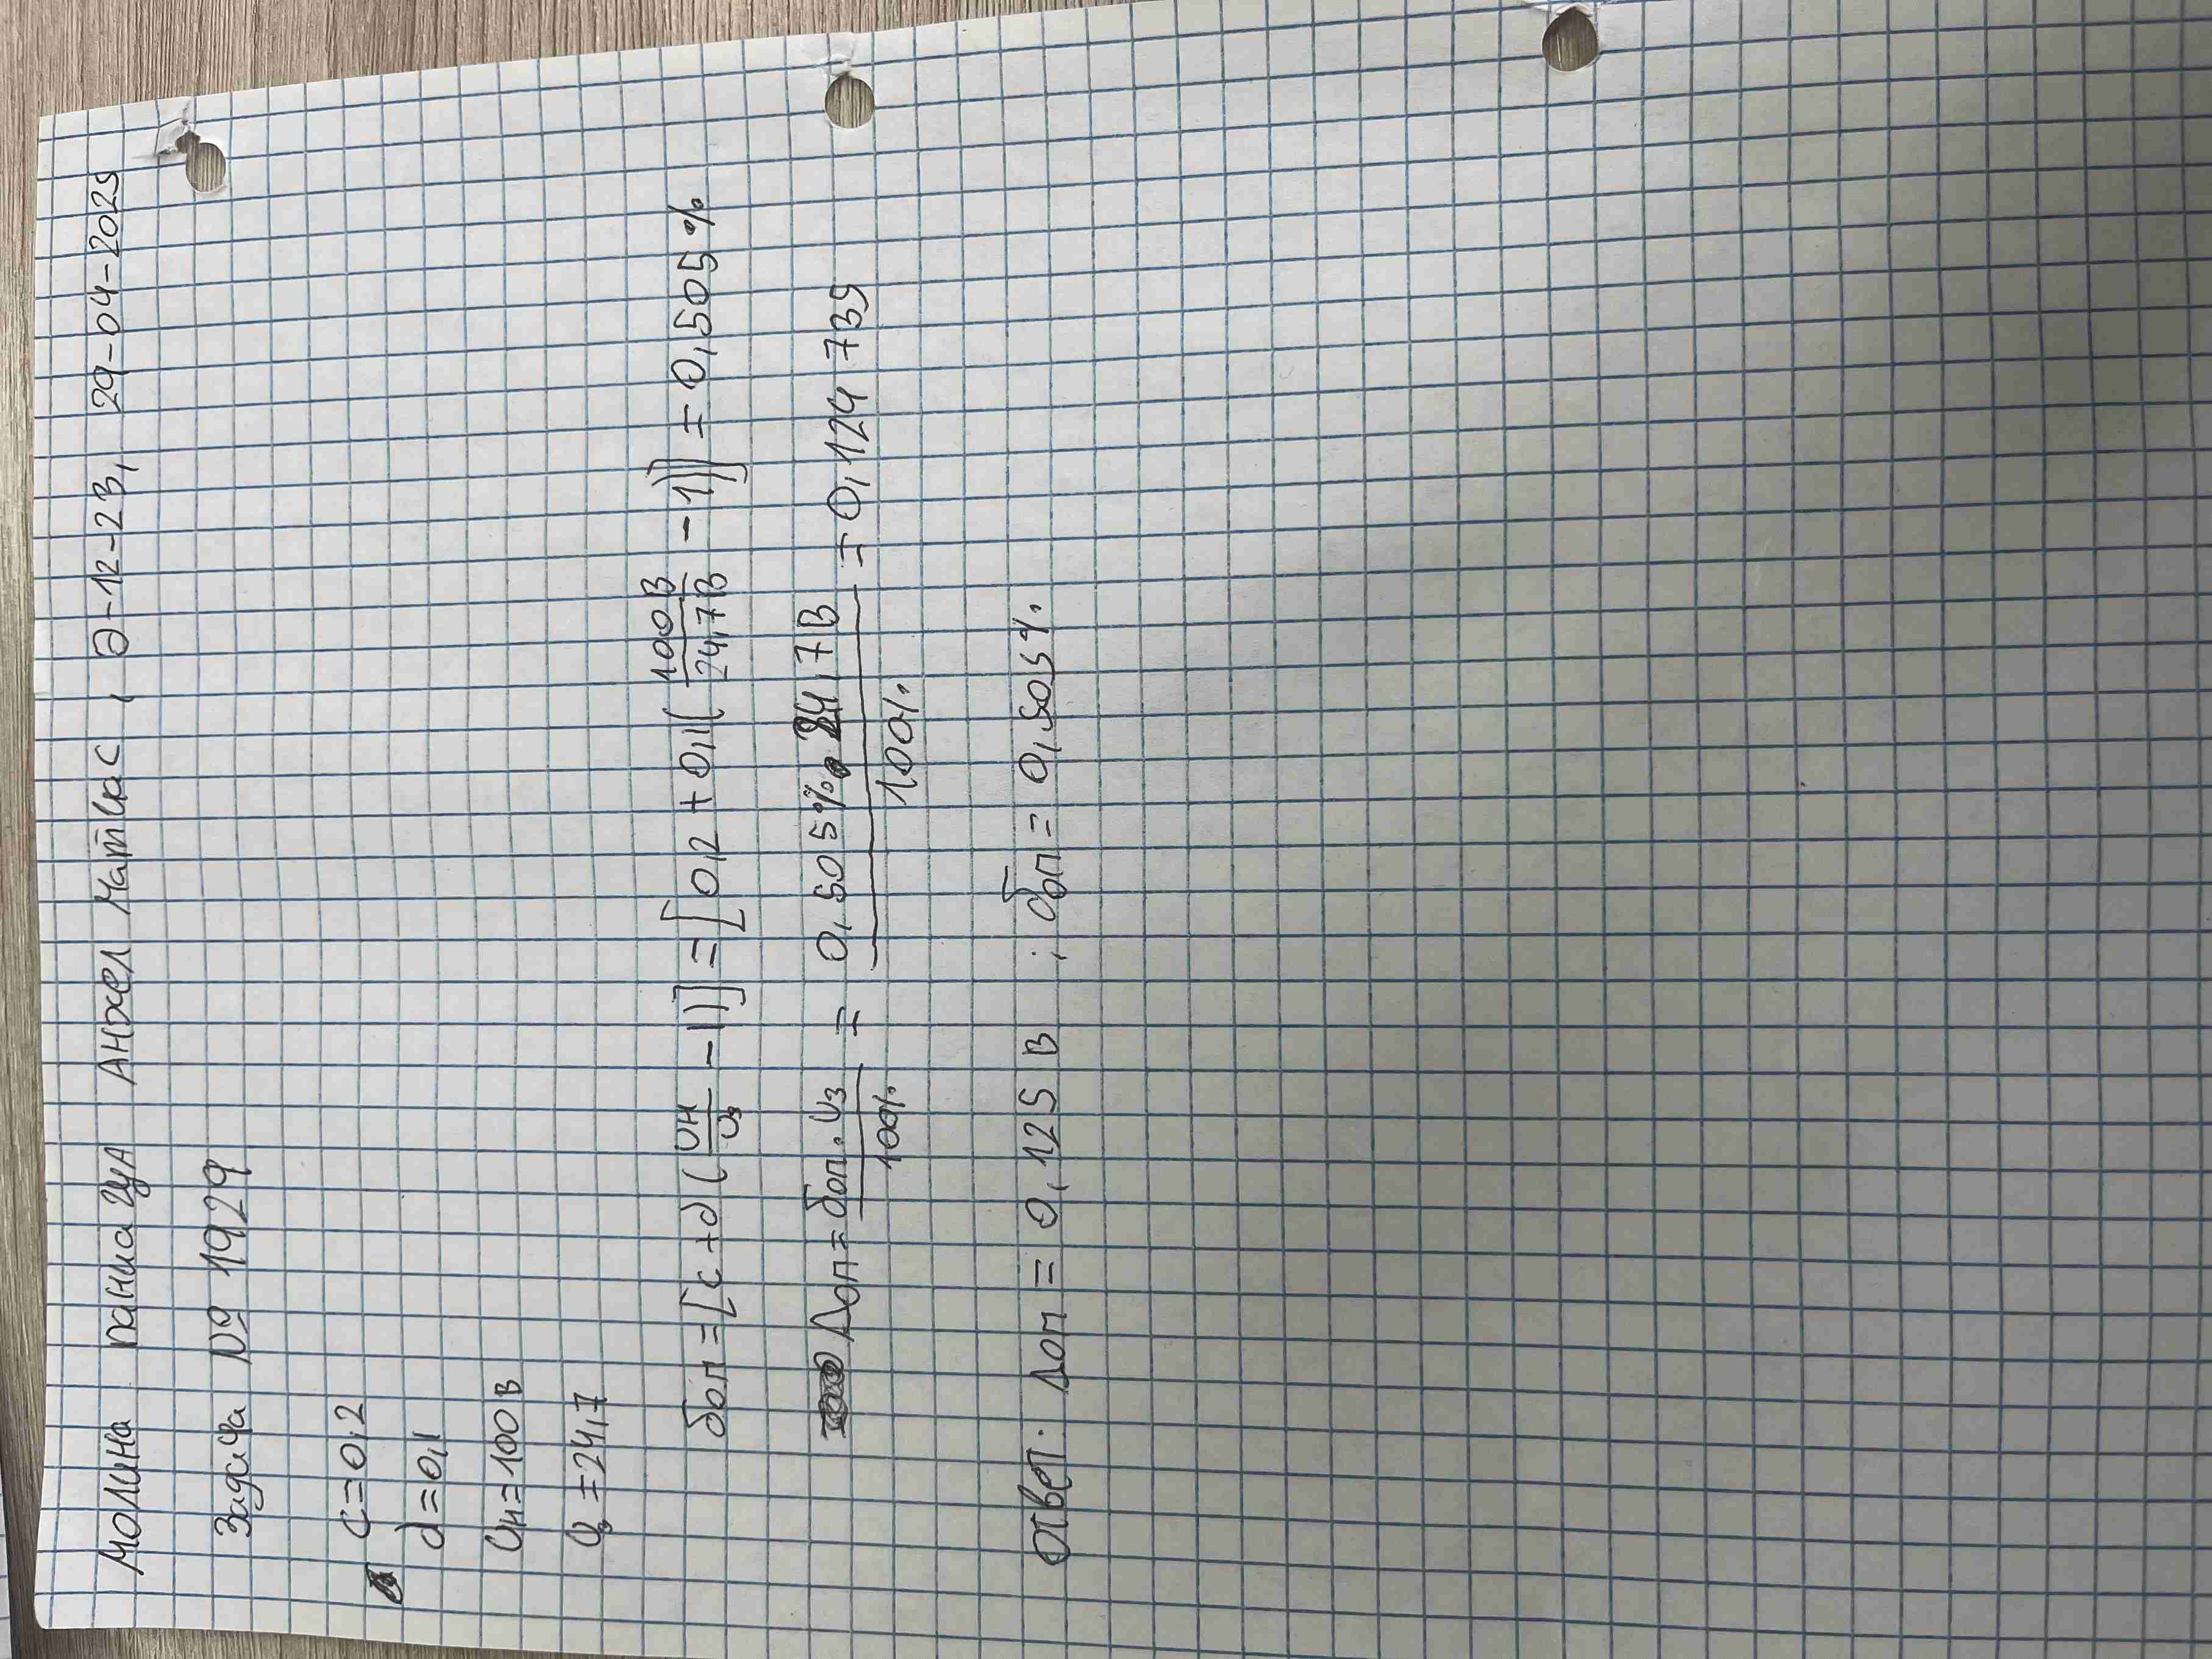 Молина Паниагуа Анхел Матиас, Э-12-23, 29-04-2025
Задача № 1929
c=0,2
d=0,1
Uн=100 В
Uз=24,7
δоп=[c+d(Uн/Uз -1)]=[0,2+0,1(100В/24,7В -1)]=0,505%
Δоп=δоп·Uз/100% = 0,505%·24,7В/100% =0,124 735
Ответ: Δоп = 0,125 В ; δоп = 0,505%